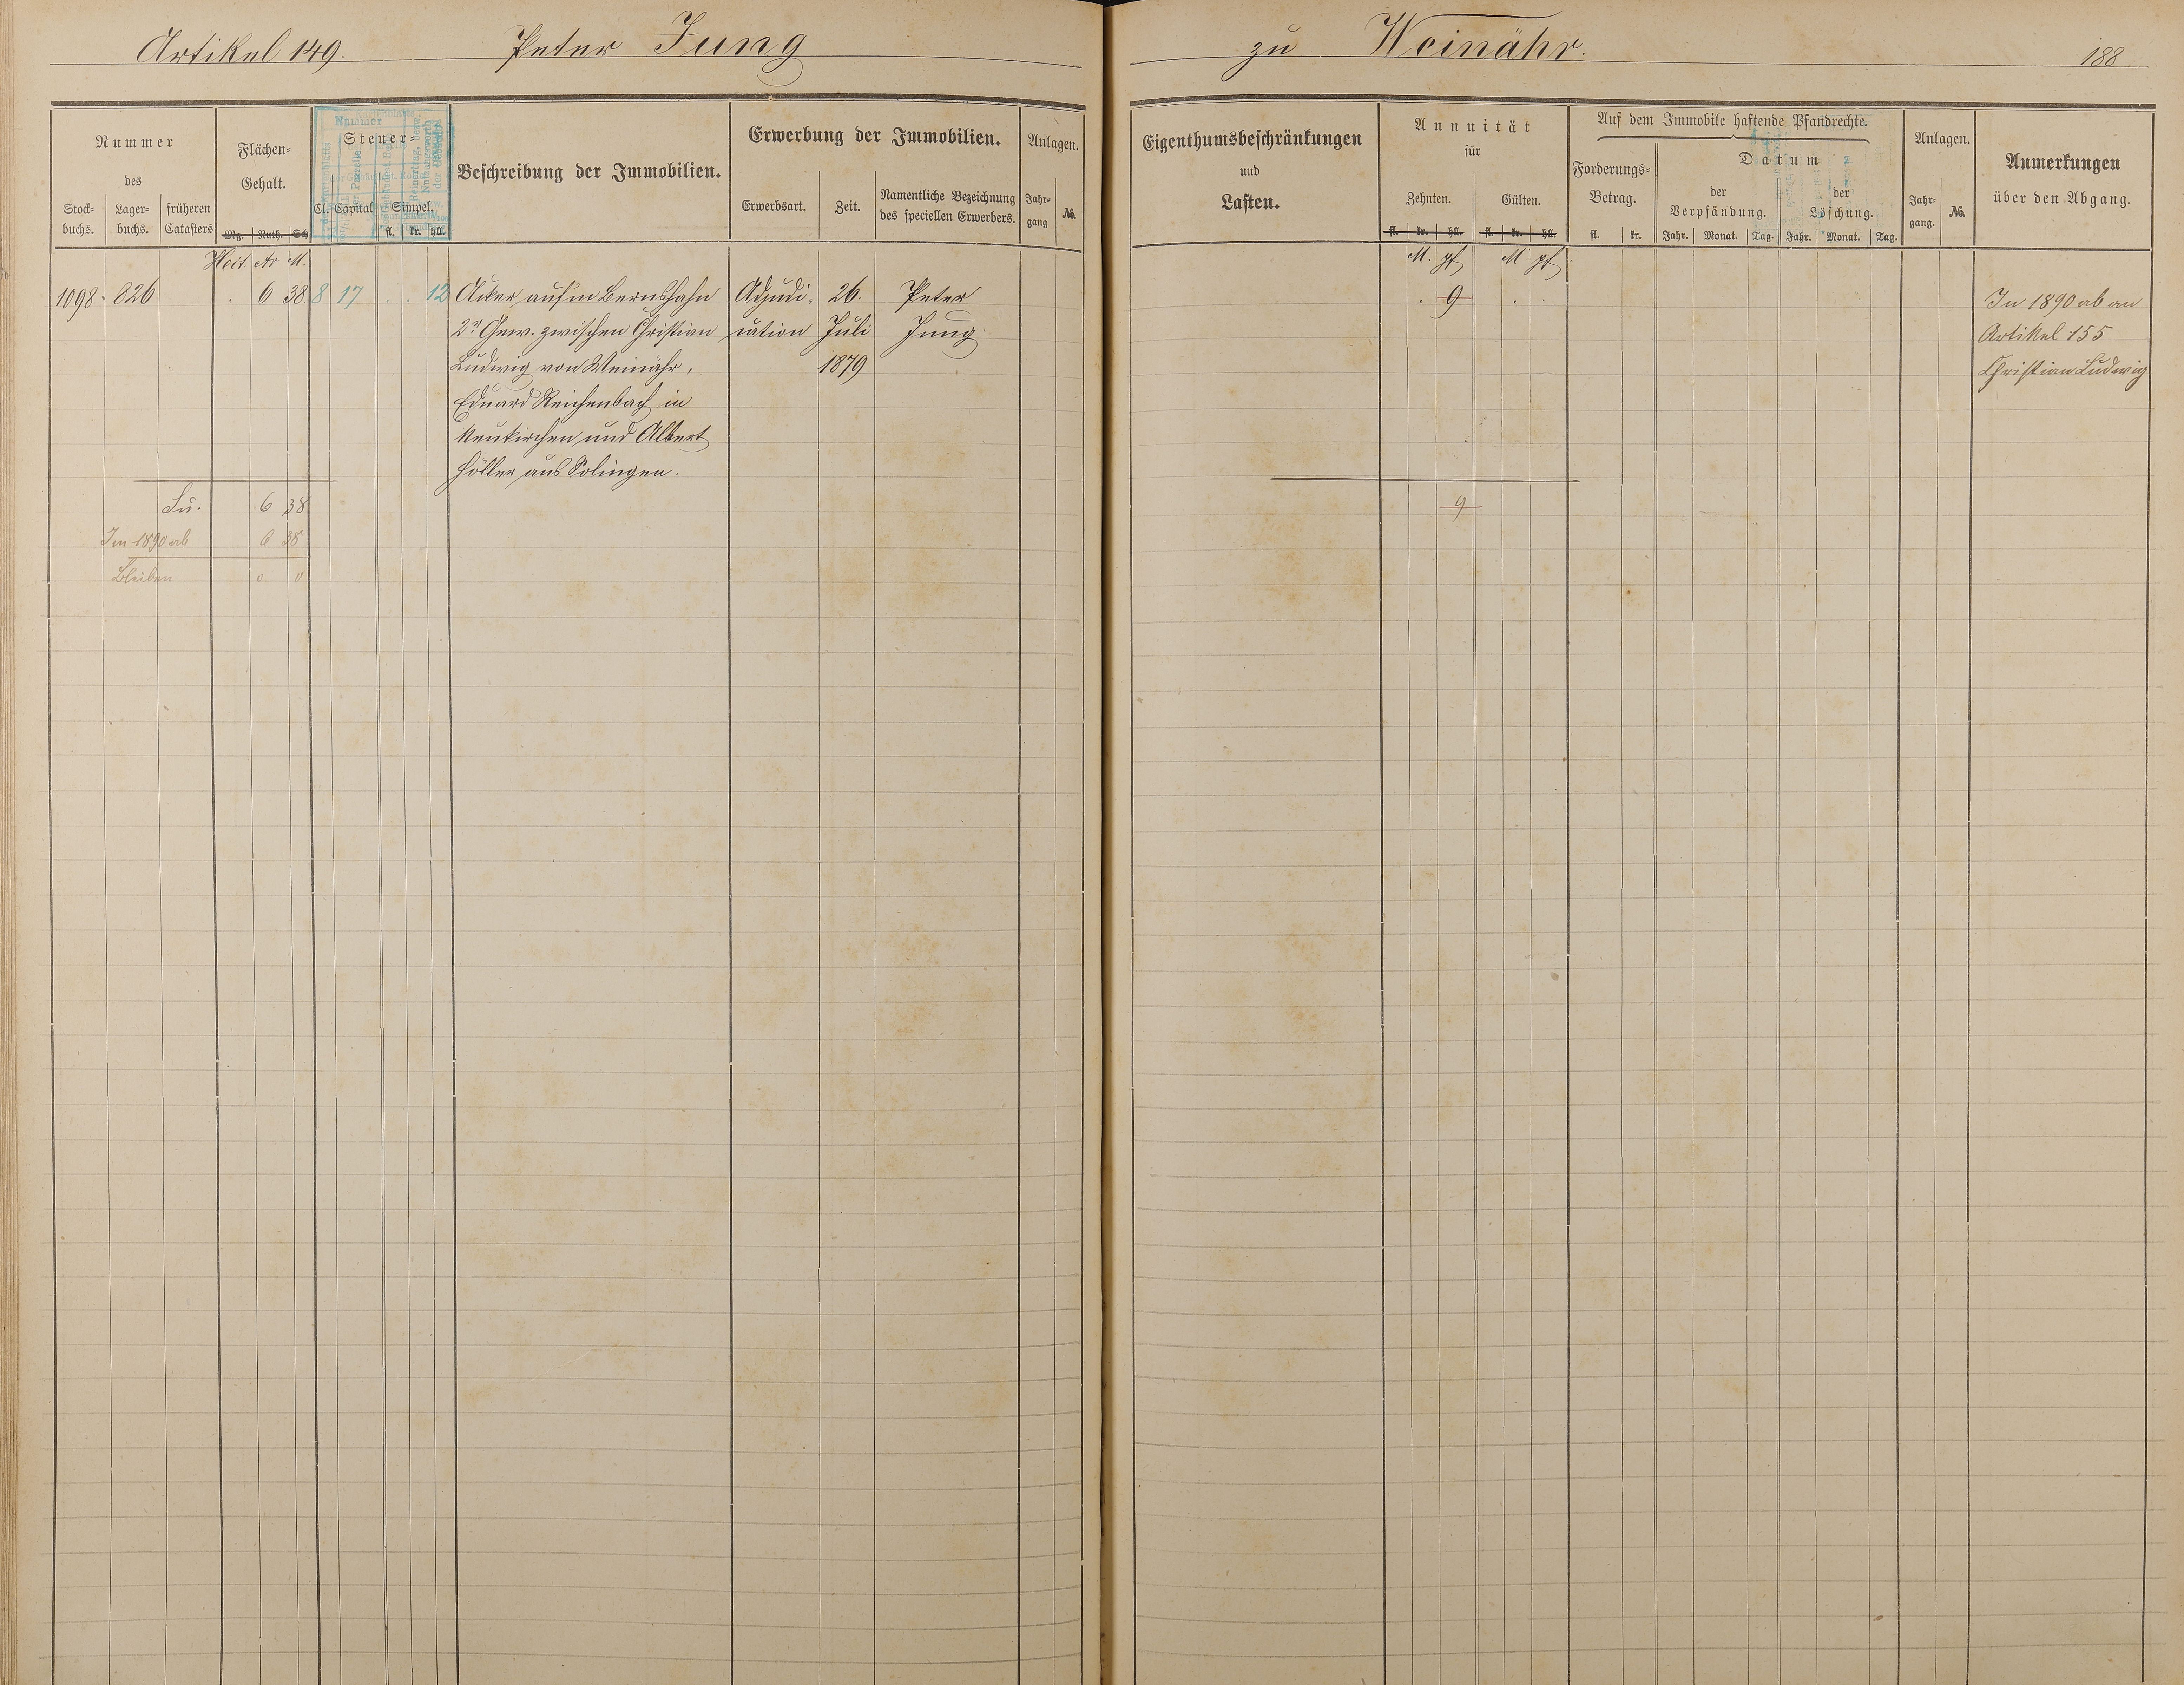 Artikel 149. Peter Jung
zu Weinähr. 188
Nummer
des
Stock-
buchs.
Lager-
buchs.
früheren
Catasters
Flächen-
Gehalt.
Mg. Ruth. Sch
Steuer-
Cl. Capital Simpel.
fl. kr. hll.
Beschreibung der Immobilien.
Erwerbung der Immobilien.
Erwerbsart. Zeit.
Namentliche Bezeichnung
des speciellen Erwerbers.
Anlagen.
Jahr-
gang
No.
Hect. Ar M.
1098 826 . 6 38 8 17 . . 12
Acker auf'm Bernshahn
2r Gew. zwischen Christian
Ludwig von Weinähr,
Eduard Reichenbach in
Neukirchen und Albert
Höller aus Solingen.
Adjudi-
cation
26.
Juli
1879
Peter
Jung.
Su. 6 38
Im 1890 ab 6 38
Bleiben 0 0
Eigenthumsbeschränkungen
und
Lasten.
Annuität
für
Zehnten. Gülten.
fl. kr. hll. fl. kr. hll.
M. pf M pf
. 9 . .
9
Auf dem Immobile haftende Pfandrechte.
Forderungs-
Betrag.
fl. kr.
Datum
der
Verpfändung.
Jahr. Monat. Tag.
der
Löschung.
Jahr. Monat. Tag.
Anlagen.
Jahr-
gang.
No.
Anmerkungen
über den Abgang.
In 1890 ab an
Artikel 155
Christian Ludwig